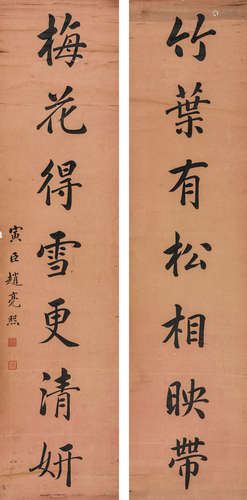 竹葉有松相映帶
梅花得雪更清妍
寅臣趙亮熙